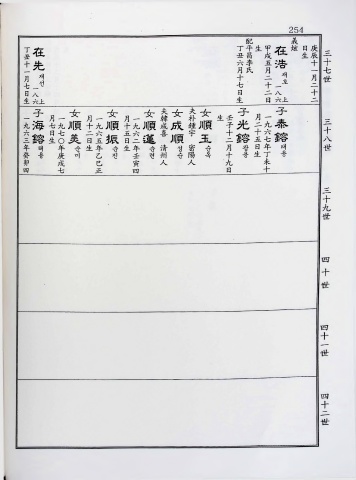 254
三十七世
庚辰十一月二十二
日生
義炫
在浩 재호 一八六 上
甲戌五月二十二日
生
配平昌李氏
丁丑六月十七日生
在先 재선 一八六 上
丁丑十一月七日生
三十八世
子泰鎔 태용
一九六七年丁未十
月二十五日生
子光鎔 광용
壬子十二月十九日
生
女順玉 순옥
夫朴鍾宇 密陽人
女成順 성순
夫韓成喜 清州人
女順蓮 순련
一九六二年壬寅四
月十五日生
女順振 순진
一九六五年乙巳正
月十二日生
女順美 순미
一九七〇年庚戌七
月七日生
子海鎔 해용
一九六三年癸卯四
三十九世
四十世
四十一世
四十二世